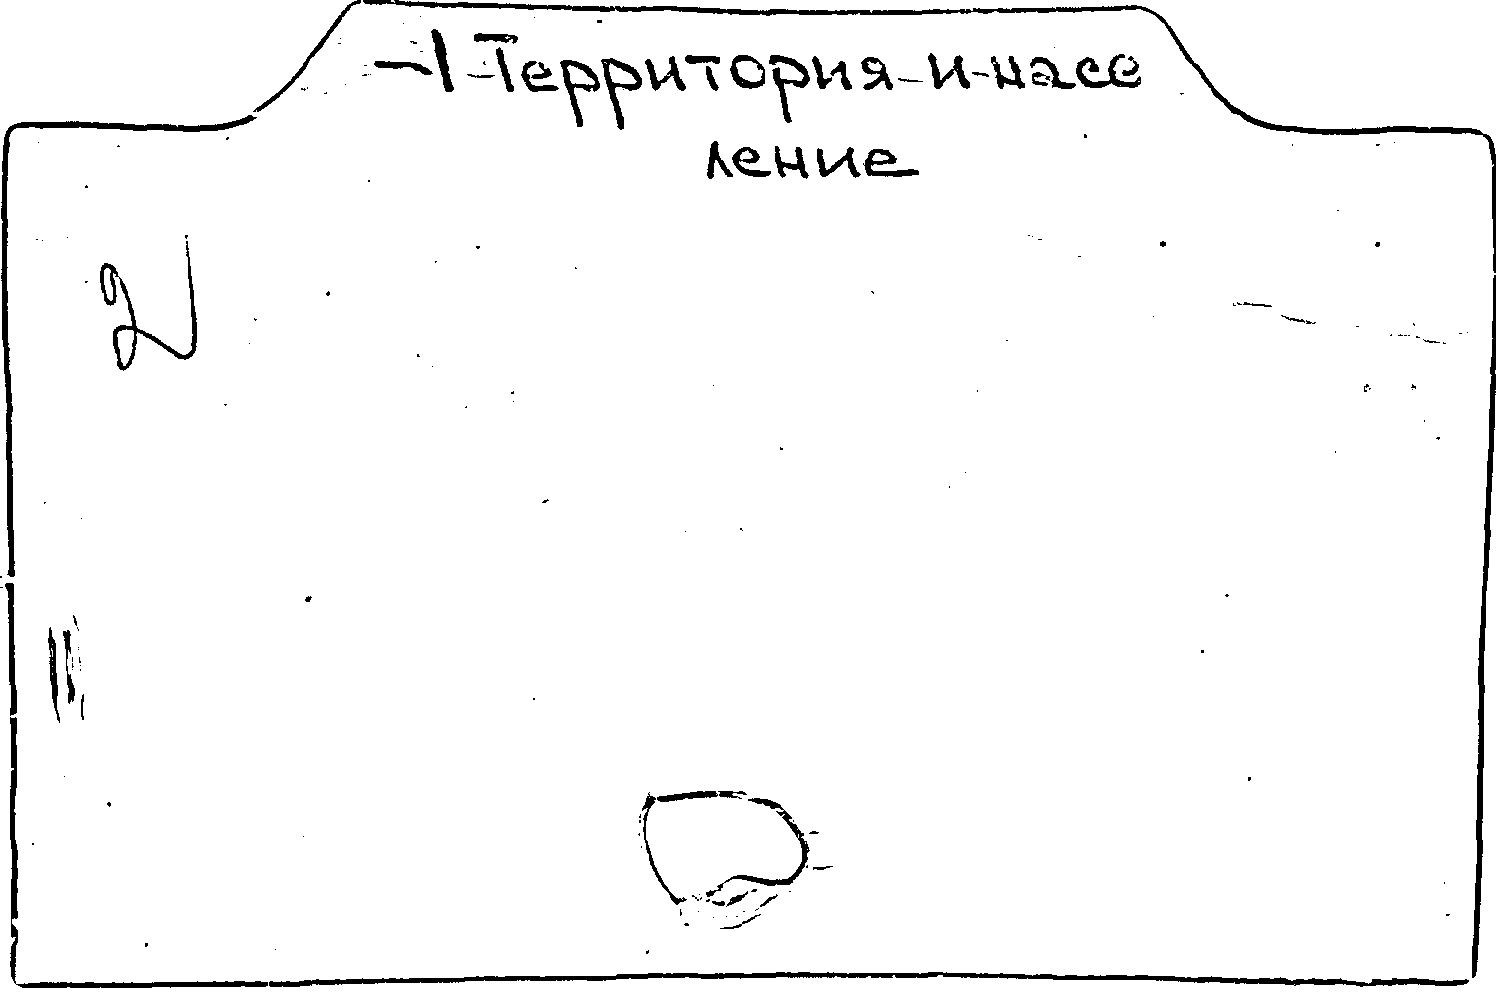 -1 Территория и насе
ление